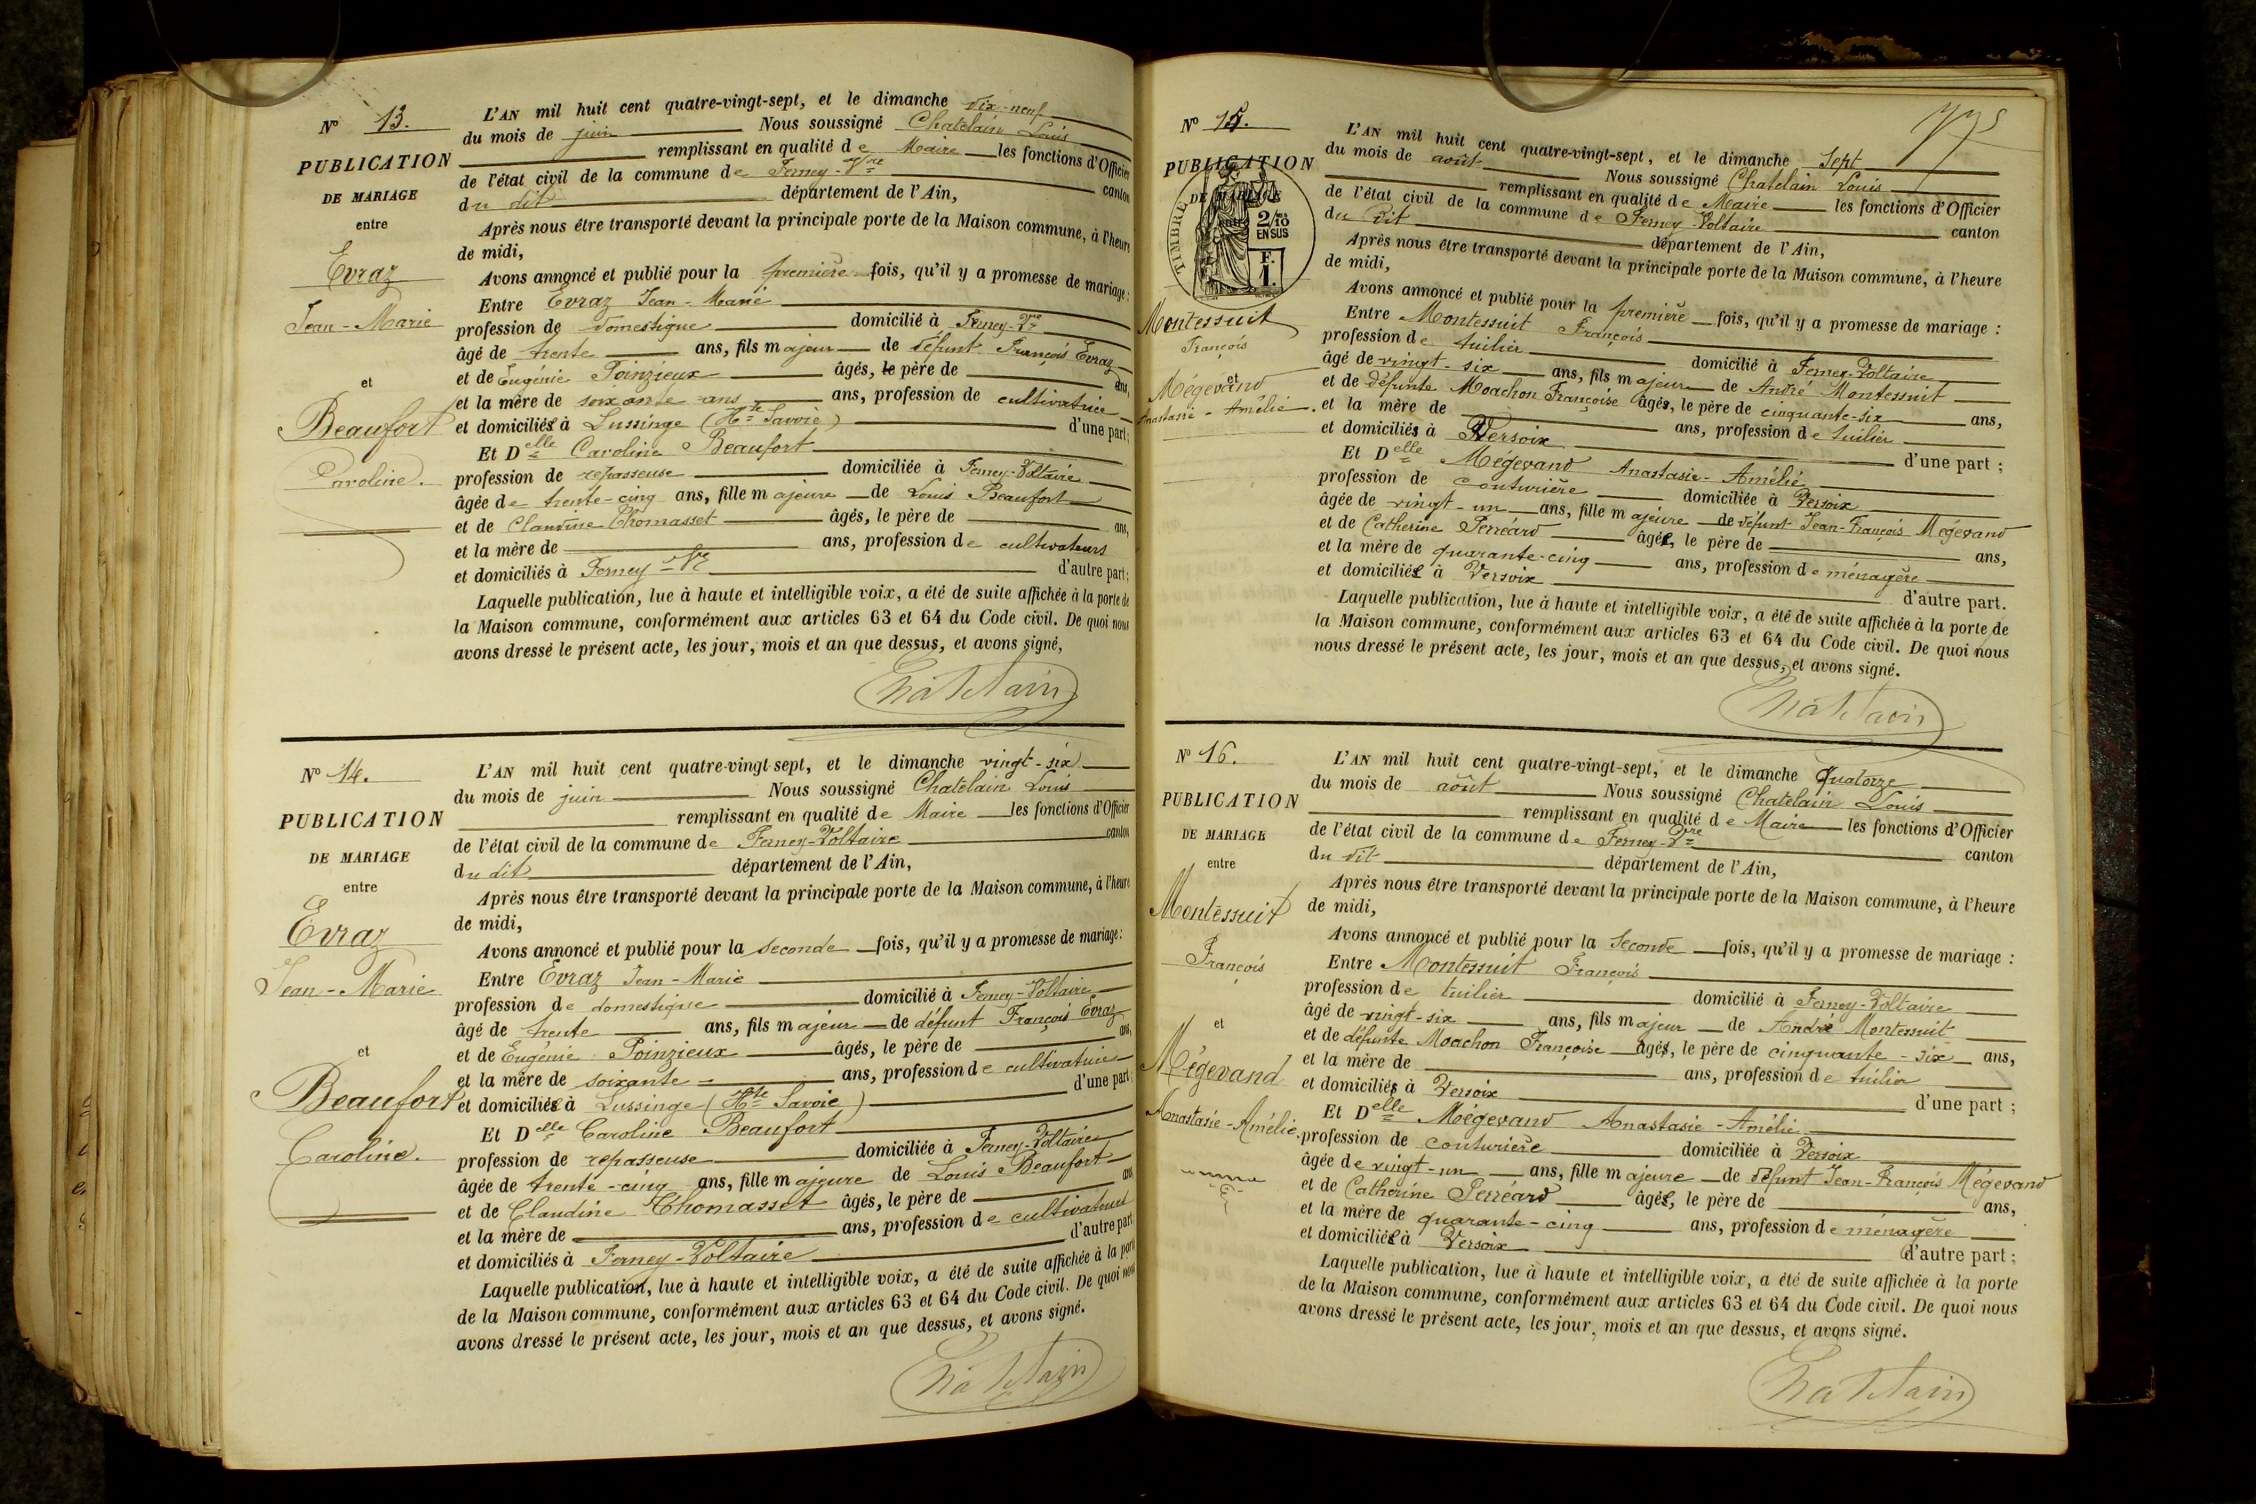 N° 13.
PUBLICATION
DE MARIAGE
entre
Evraz
Jean-Marie
et
Beaufort
Caroline.
L'AN mil huit cent quatre-vingt-sept, et le dimanche dix-neuf
du mois de juin Nous soussigné Chatelain Louis
remplissant en qualité de Maire les fonctions d'Officier
de l'état civil de la commune de Ferney-Vre canton
du dit département de l'Ain,
Après nous être transporté devant la principale porte de la Maison commune, à l'heure
de midi,
Avons annoncé et publié pour la première fois, qu'il y a promesse de mariage :
Entre Evraz Jean-Marie
profession de domestique domicilié à Ferney-Vre
âgé de trente ans, fils majeur de défunt François Evraz
et de Eugénie Poinzieux âgés, le père de ans,
et la mère de soixante ans ans, profession de cultivatrice
et domiciliée à Lussinge (Hte Savoie) d'une part;
Et Delle Caroline Beaufort
profession de repasseuse domiciliée à Ferney-Voltaire
âgée de trente-cinq ans, fille majeure de Louis Beaufort
et de Claudine Thomasset âgés, le père de ans,
et la mère de ans, profession de cultivateurs
et domiciliés à Ferney-Vre d'autre part;
Laquelle publication, lue à haute et intelligible voix, a été de suite affichée à la porte de
la Maison commune, conformément aux articles 63 et 64 du Code civil. De quoi nous
avons dressé le présent acte, les jour, mois et an que dessus, et avons signé,
Châtelain
N° 14.
PUBLICATION
DE MARIAGE
entre
Evraz
Jean-Marie
et
Beaufort
Caroline.
L'AN mil huit cent quatre-vingt sept, et le dimanche vingt-six
du mois de juin Nous soussigné Chatelain Louis
remplissant en qualité de Maire les fonctions d'Officier
de l'état civil de la commune de Ferney-Voltaire canton
du dit département de l'Ain,
Après nous être transporté devant la principale porte de la Maison commune, à l'heure
de midi,
Avons annoncé et publié pour la seconde fois, qu'il y a promesse de mariage:
Entre Evraz Jean-Marie
profession de domestique domicilié à Ferney-Voltaire
âgé de trente ans, fils majeur de défunt François Evraz
et de Eugénie Poinzieux âgés, le père de ans,
et la mère de soixante ans, profession de cultivatrice
et domiciliée à Lussinge (Hte Savoie) d'une part
Et Delle Caroline Beaufort
profession de repasseuse domiciliée à Ferney-Voltaire
âgée de trente-cinq ans, fille majeure de Louis Beaufort
et de Claudine Thomasset âgés, le père de ans
et la mère de ans, profession de cultivateurs
et domiciliés à Ferney-Voltaire d'autre part
Laquelle publication, lue à haute et intelligible voix, a été de suite affichée à la porte
de la Maison commune, conformément aux articles 63 et 64 du Code civil. De quoi nous
avons dressé le présent acte, les jour, mois et an que dessus, et avons signé.
Châtelain
N° 15.
PUBLICATION
DE MARIAGE
entre
TIMBRE
2/10
EN SUS
F.
1.
Montessuit
François
et
Mégevand
Anastasie-Amélie.
L'AN mil huit cent quatre-vingt-sept, et le dimanche Sept
du mois de août Nous soussigné Chatelain Louis
remplissant en qualité de Maire les fonctions d'Officier
de l'état civil de la commune de Ferney-Voltaire canton
du dit département de l'Ain,
Après nous être transporté devant la principale porte de la Maison commune, à l'heure
de midi,
Avons annoncé et publié pour la première fois, qu'il y a promesse de mariage :
Entre Montessuit François
profession de tuilier domicilié à Ferney-Voltaire
âgé de vingt-six ans, fils majeur de André Montessuit
et de défunte Moachon Françoise âgés, le père de cinquante-six ans,
et la mère de ans, profession de tuilier
et domiciliés à Versoix d'une part ;
Et Delle Mégevand Anastasie-Amélie
profession de couturière domiciliée à Versoix
âgée de vingt-un ans, fille majeure de défunt Jean-François Mégevand
et de Catherine Perréard âgée, le père de ans,
et la mère de quarante-cinq ans, profession de ménagère
et domiciliée à Versoix d'autre part.
Laquelle publication, lue à haute et intelligible voix, a été de suite affichée à la porte de
la Maison commune, conformément aux articles 63 et 64 du Code civil. De quoi nous
nous dressé le présent acte, les jour, mois et an que dessus, et avons signé.
Châtelain
N° 16.
PUBLICATION
DE MARIAGE
entre
Montessuit
François
et
Mégevand
Anastasie-Amélie.
L'AN mil huit cent quatre-vingt-sept, et le dimanche Quatorze
du mois de août Nous soussigné Chatelain Louis
remplissant en qualité de Maire les fonctions d'Officier
de l'état civil de la commune de Ferney-Vre canton
du dit département de l'Ain,
Après nous être transporté devant la principale porte de la Maison commune, à l'heure
de midi,
Avons annoncé et publié pour la Seconde fois, qu'il y a promesse de mariage :
Entre Montessuit François
profession de tuilier domicilié à Ferney-Voltaire
âgé de vingt-six ans, fils majeur de André Montessuit
et de défunte Moachon Françoise âgés, le père de cinquante-six ans,
et la mère de ans, profession de tuilier
et domiciliés à Versoix d'une part ;
Et Delle Mégevand Anastasie-Amélie
profession de couturière domiciliée à Versoix
âgée de vingt-un ans, fille majeure de défunt Jean-François Mégevand
et de Catherine Perréard âgée, le père de ans,
et la mère de quarante-cinq ans, profession de ménagère
et domiciliée à Versoix d'autre part ;
Laquelle publication, lue à haute et intelligible voix, a été de suite affichée à la porte
de la Maison commune, conformément aux articles 63 et 64 du Code civil. De quoi nous
avons dressé le présent acte, les jour, mois et an que dessus, et avons signé.
Châtelain